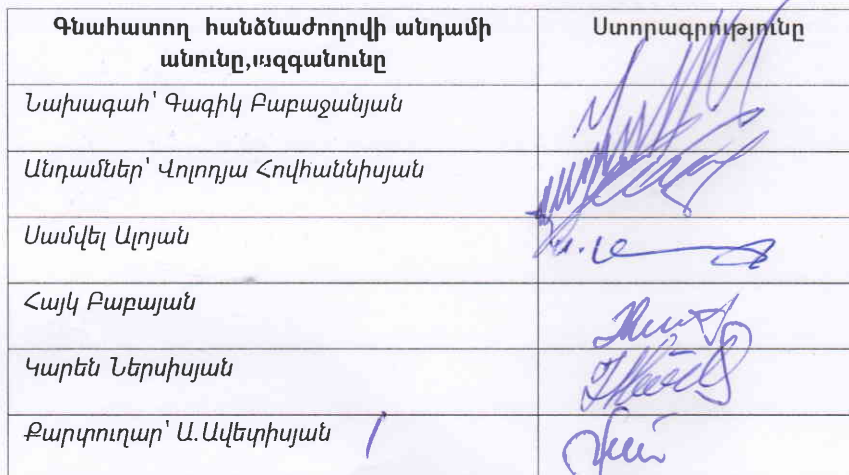 Գնահատող հանձնաժողովի անդամի
անունը,ազգանունը
Ստորագրությունը
Նախագահ՝ Գագիկ Բաբաջանյան
Անդամներ՝ Վոլոդյա Հովհաննիսյան
Սամվել Ալոյան
Հայկ Բաբայան
Կարեն Ներսիսյան
Քարտուղար՝ Ա.Ավետիսյան